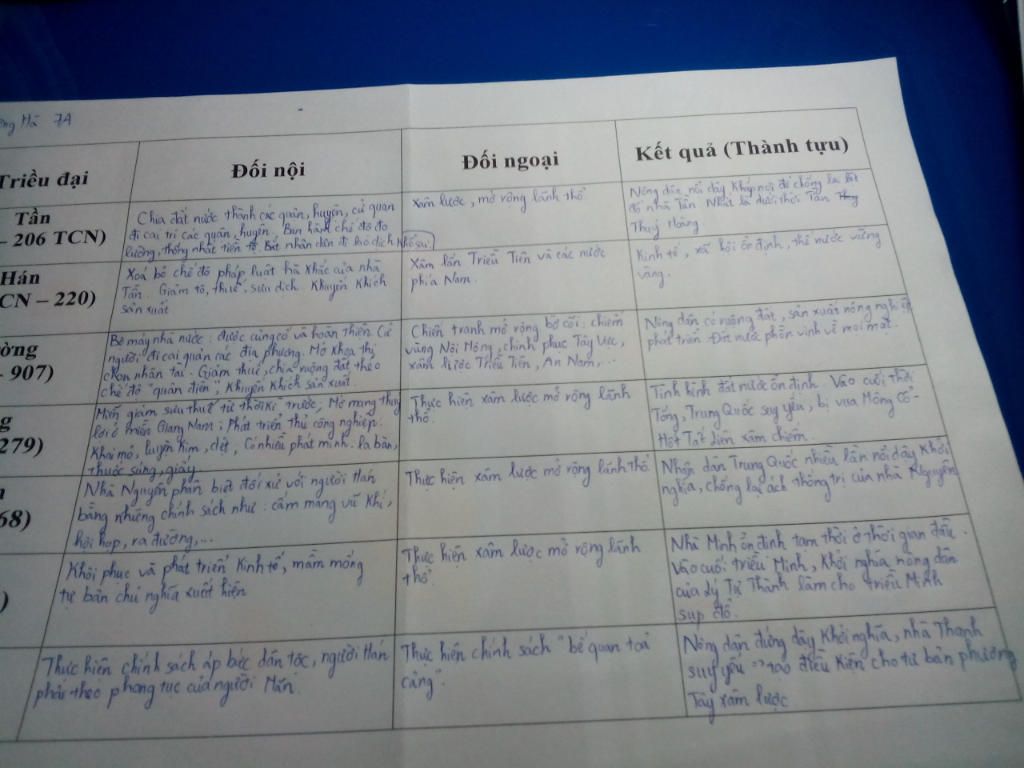 Hà 7A
Triều đại
Đối nội
Đối ngoại
Kết quả (Thành tựu)
Tần
– 206 TCN)
Chia đất nước thành các quận, huyện, cử quan
đi cai trị các quận, huyện. Ban hành chế độ đo
lường, thống nhất tiền tệ. Bắt nhân dân đi lao dịch
Xâm lược, mở rộng lãnh thổ
Nông dân nổi dậy khắp nơi để chống lại lật
đổ nhà Tần. Nhất là dưới thời Tần
Thuỷ Hoàng.
Hán
CN – 220)
Xoá bỏ chế độ pháp luật hà khắc của nhà
Tần. Giảm tô, thuế, sưu dịch. Khuyến khích
sản xuất
Xâm lấn Triều Tiên và các nước
phía Nam.
Kinh tế, xã hội ổn định, thế nước vững
vàng.
ường
– 907)
Bộ máy nhà nước: được củng cố và hoàn thiện. Cử
người đi cai quản các địa phương. Mở khoa thi
chọn nhân tài. Giảm thuế, chia ruộng đất theo
chế độ "quân điền", khuyến khích sản xuất.
Chiến tranh mở rộng bờ cõi: chiếm
vùng Nội Mông, chinh phục Tây Vực,
xâm lược Triều Tiên, An Nam,...
Nông dân có ruộng đất, sản xuất nông nghiệp
phát triển. Đất nước phồn vinh về mọi mặt.
g
279)
Miễn giảm sưu thuế từ thời kì trước; Mở mang thuỷ
lợi ở miền Giang Nam; Phát triển thủ công nghiệp.
Khai mỏ, luyện kim, dệt, Có nhiều phát minh: la bàn,
thuốc súng, giấy.
Thực hiện xâm lược mở rộng lãnh
thổ.
Tình hình đất nước ổn định. Vào cuối thời
Tống, Trung Quốc suy yếu, bị vua Mông Cổ-
Hốt Tất Liên xâm chiếm.
68)
Nhà Nguyên phân biệt đối xử với người Hán
bằng những chính sách như: cấm mang vũ khí,
hội họp, ra đường,...
Thực hiện xâm lược mở rộng lãnh thổ
Nhân dân Trung Quốc nhiều lần nổi dậy khởi
nghĩa, chống lại ách thống trị của nhà Nguyên
)
Khôi phục và phát triển kinh tế, mầm mống
tư bản chủ nghĩa xuất hiện
Thực hiện xâm lược mở rộng lãnh
thổ.
Nhà Minh ổn định tạm thời ở thời gian đầu.
Vào cuối triều Minh, khởi nghĩa nông dân
của Lý Tự Thành làm cho triều Minh
sụp đổ.
Thực hiện chính sách áp bức dân tộc, người Hán
phải theo phong tục của người Mãn.
Thực hiện chính sách "bế quan toả
cảng".
Nông dân đứng dậy khởi nghĩa, nhà Thanh
suy yếu → tạo điều kiện cho tư bản phương
Tây xâm lược